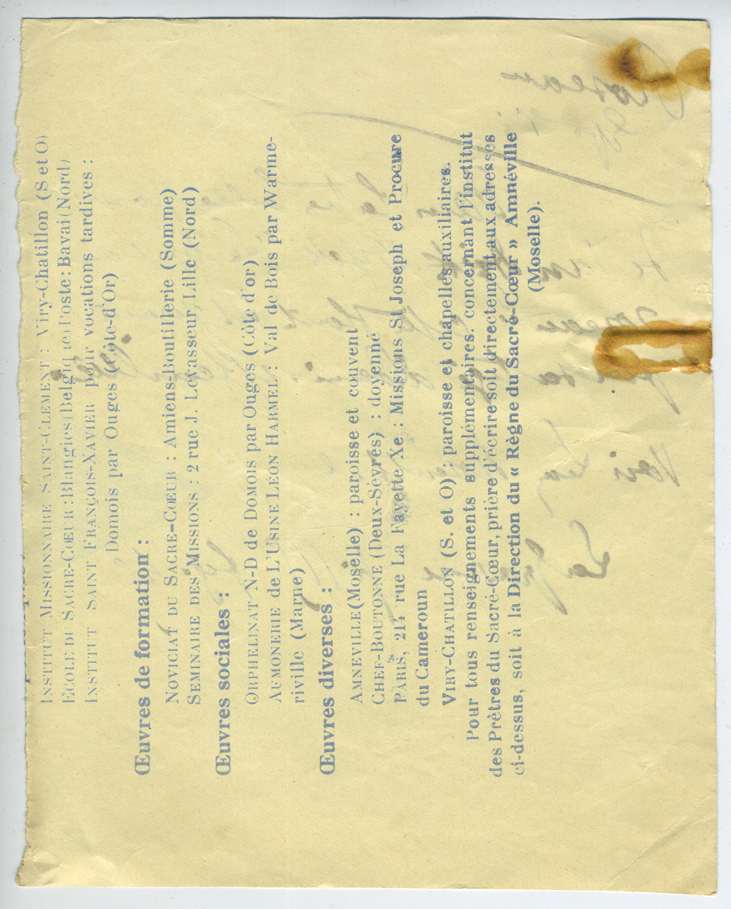 INSTITUT MISSIONNAIRE SAINT-CLEMENT : Viry-Chatillon (S et O)
ECOLE DU SACRE-CŒUR : Blangies (Belgique) Poste : Bavai (Nord)
INSTITUT SAINT FRANÇOIS-XAVIER pour vocations tardives :
Domois par Ouges (Côte-d'Or)
Œuvres de formation :
NOVICIAT DU SACRE-CŒUR : Amiens-Boutillerie (Somme)
SEMINAIRE DES MISSIONS : 2 rue J. Levasseur Lille (Nord)
Œuvres sociales :
ORPHELINAT N-D DE DOMOIS par Ouges (Côte d'or)
AUMONERIE de L'USINE LÉON HARMEL : Val de Bois par Warme-
riville (Marne)
Œuvres diverses :
AMNEVILLE (Moselle) : paroisse et couvent
CHEF-BOUTONNE (Deux-Sèvres) : doyenné
PARIS, 217 rue La Fayette Xe : Missions St Joseph et Procure
du Cameroun
VIRY-CHATILLON (S. et O) : paroisse et chapelles auxiliaires.
Pour tous renseignements supplémentaires. concernant l'institut
des Prêtres du Sacré-Cœur, prière d'écrire soit directement aux adresses
ci-dessus, soit à la Direction du « Règne du Sacré-Cœur » Amnéville
(Moselle).